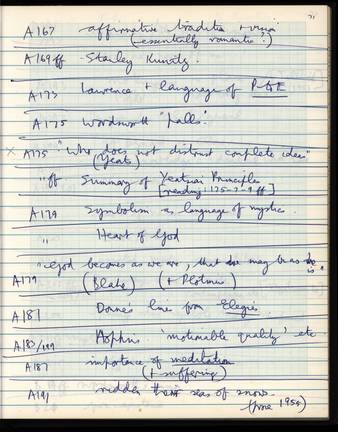 71
A167 affirmative tradition + vision
(essentially romantic?)
A169ff Stanley Kunitz.
A173 Lawrence + language of
A175 Wordsworth "palls".
x A175 "Who does not distrust complete ideas"
(Yeats)
" ff Summary of Yeatsian Principles
[reading 175-7-9 ff]
A179 Symbolism as language of mystics.
" Heart of God
"God becomes as we are, that we may be as he
is"
A179 (Blake) (+ Plotinus)
A181 Donne's line from Elegies.
A183/199 Hopkins' 'motionable quality' etc
A187 importance of meditation
(+ suffering)
A191 seas of snow.
(June 1955)